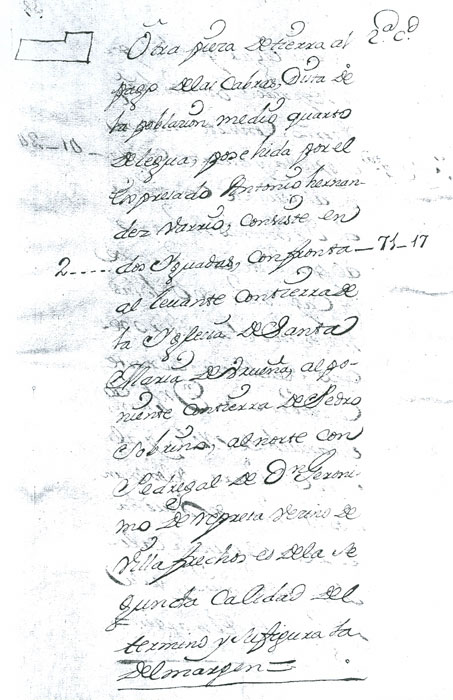 Otra pieza de tierra al 2ª cd
pago de las Cabras, Dista de
la poblazion medio quarto
de legua, posehida por el
expresado Antonio hernan-
dez Varrio, Consiste en
2.... dos Yguadas, confronta — 71-17
al levante con tierra de
la Yglesia de Santa
Maria de
niente con tierra de Pedro
Sobrino, al norte con
Pedregal de Dn Geroni-
mo de Represa Vezino de
Villa frechos es de la Se
gunda Calidad del
termino y su figura la
del margen =